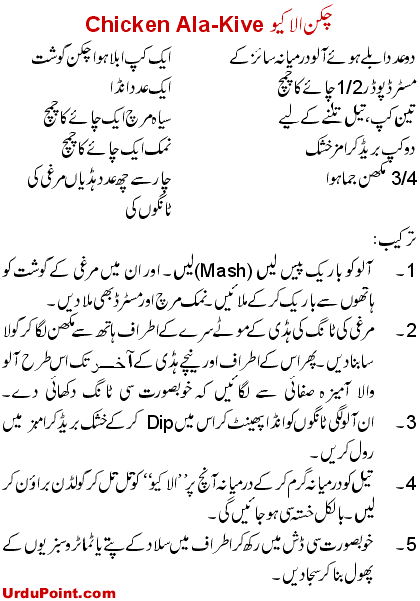 چکن الا کیو Chicken Ala-Kive
دو عدد ابلے ہوئے آلو درمیانہ سائز کے
مسٹرڈ پوڈر 1/2 چائے کا چمچ
تین کپ، تیل تلنے کے لیے
دو کپ بریڈ کرامز خشک
3/4 مکھن جما ہوا
ایک کپ ابلا ہوا چکن گوشت
ایک عدد انڈا
سیاہ مرچ ایک چائے کا چمچ
نمک ایک چائے کا چمچ
چار سے چھ عدد ہڈیاں مرغی کی
ٹانگوں کی
ترکیب :
1۔ آلو کو باریک پیس لیں (Mash) لیں۔ اور ان میں مرغی کے گوشت کو
ہاتھوں سے باریک کر کے ملائیں۔ نمک مرچ اور مسٹرڈ بھی ملا دیں۔
2۔ مرغی کی ٹانگ کی ہڈی کے موٹے سرے کے اطراف ہاتھ سے مکھن لگا کر گولا
سا بنا دیں۔ پھر اس کے اطراف اور نیچے ہڈی کے آخر تک اس طرح آلو
والا آمیزہ صفائی سے لگائیں کہ خوبصورت سی ٹانگ دکھائی دے۔
3۔ ان آلو لگی ٹانگوں کو انڈا پھینٹ کر اس میں Dip کر کے خشک بریڈ کرامز میں
رول کریں۔
4۔ تیل کو درمیانہ گرم کر کے درمیانہ آنچ پر ”الا کیو“ کو تل تل کر گولڈن براؤن کر
لیں۔ بالکل خستہ سی ہو جائیں گی۔
5۔ خوبصورت سی ڈش میں رکھ کر اطراف میں سلاد کے پتے یا ٹماٹر و سبزیوں کے
پھول بنا کر سجا دیں۔
UrduPoint.com